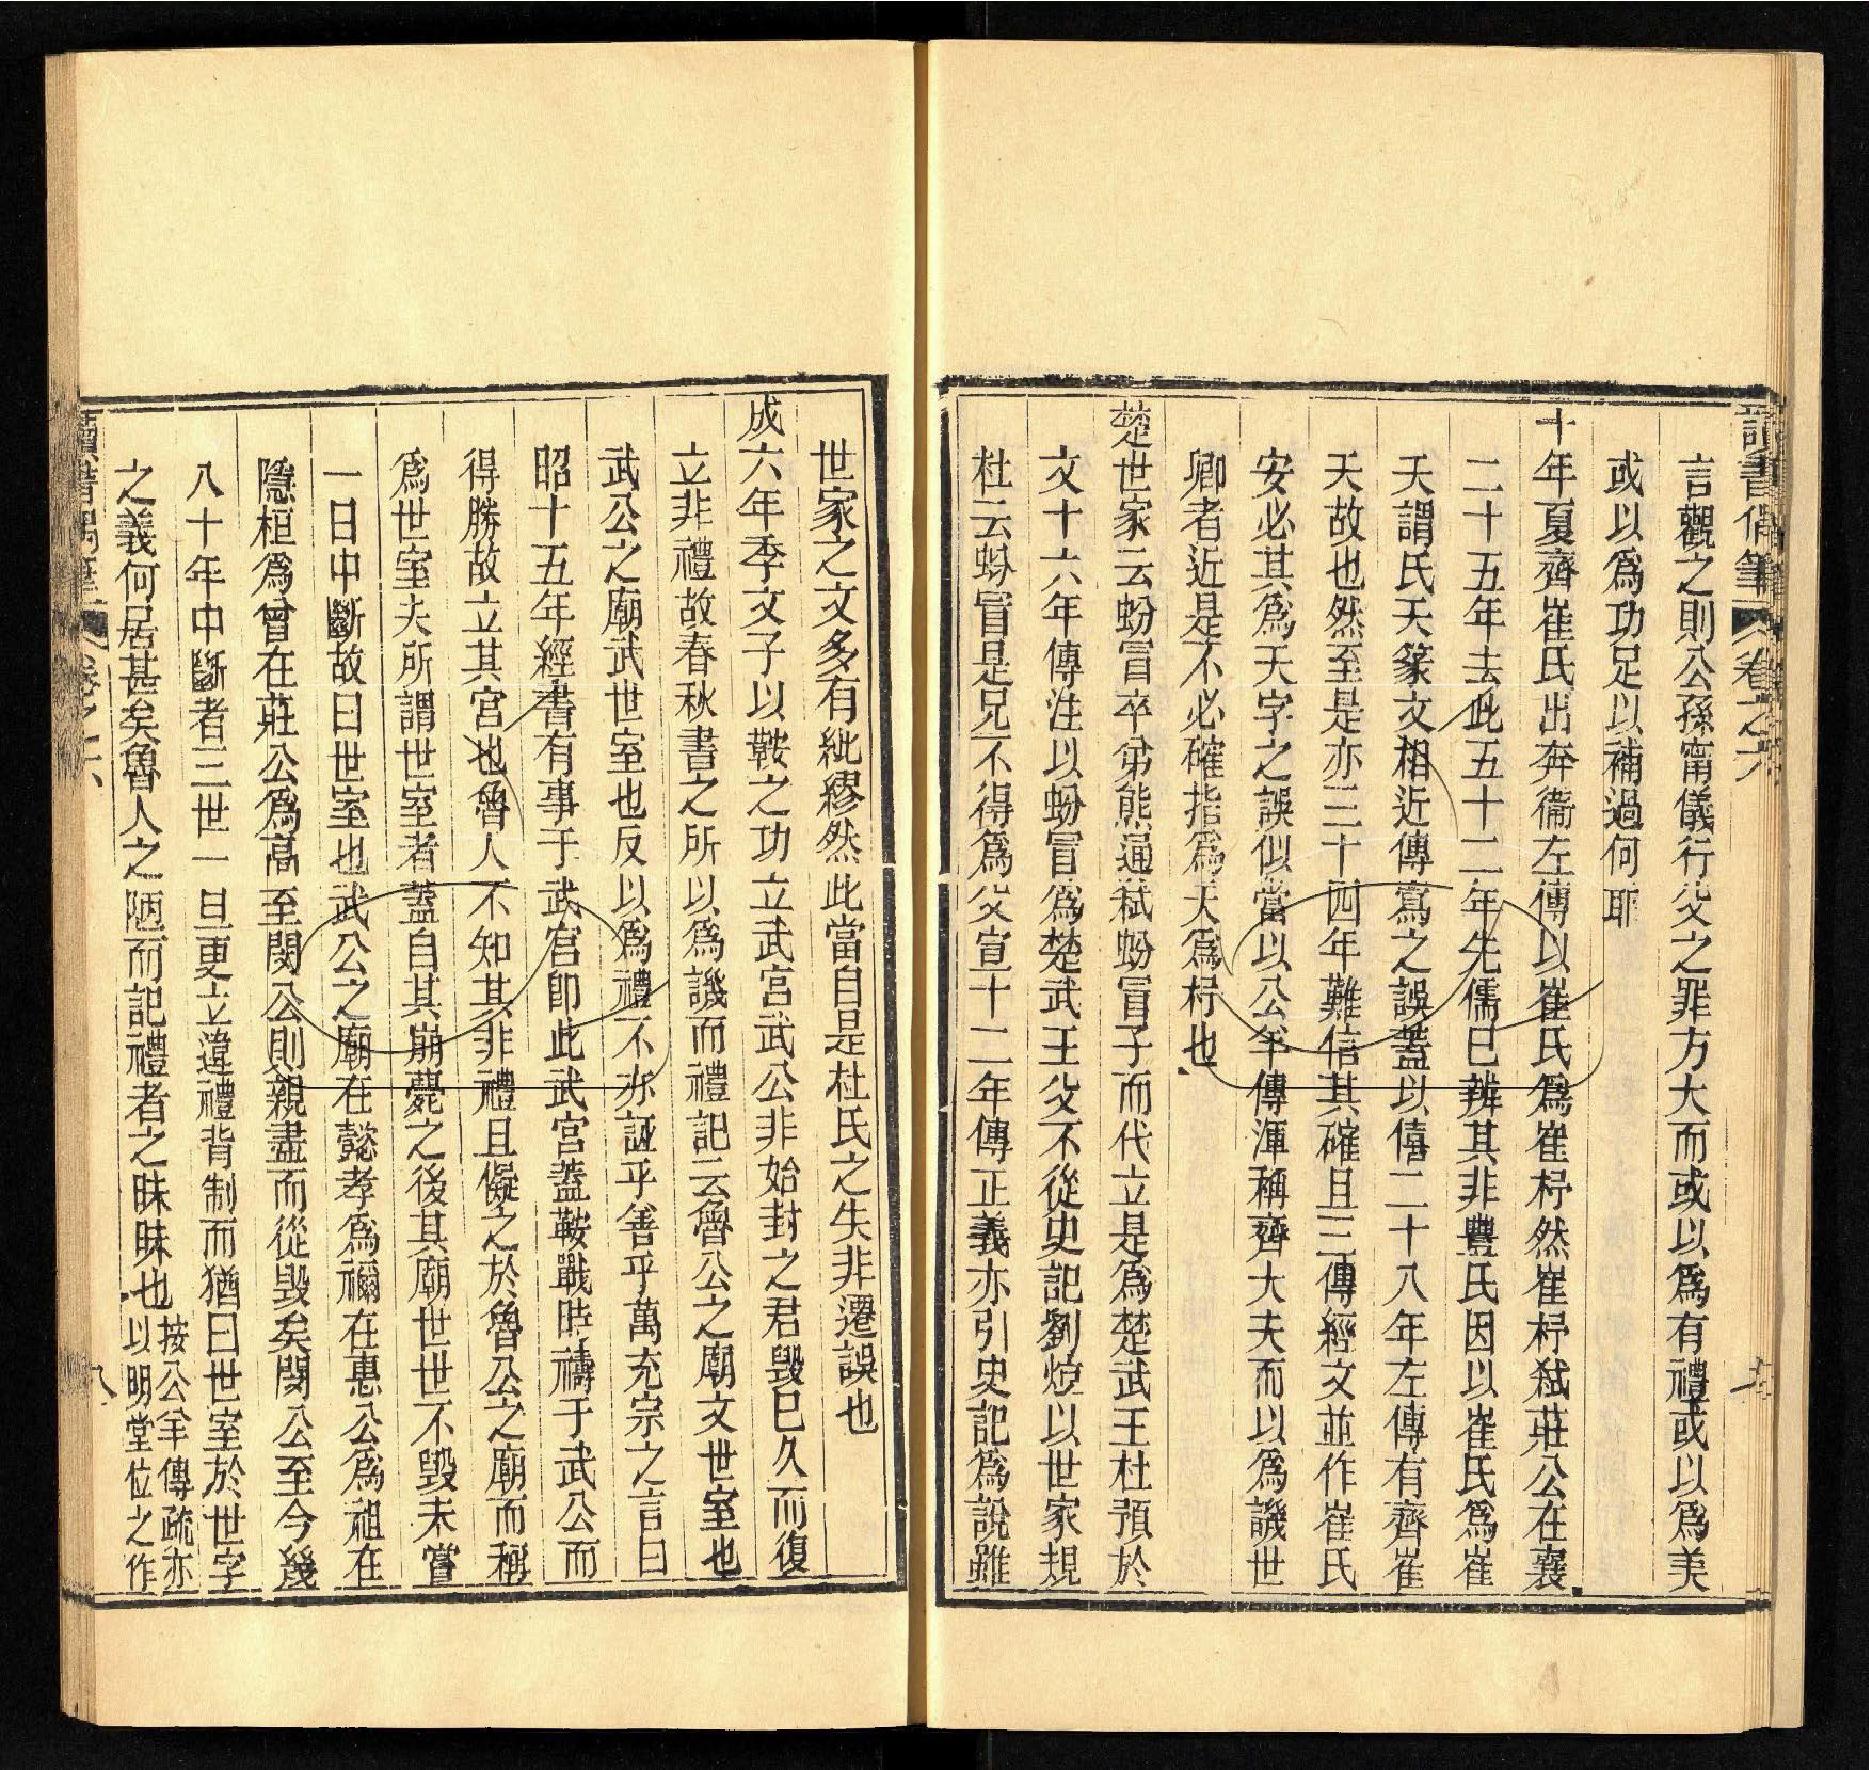 讀書偶筆 卷之六
言觀之則公孫甯儀行父之罪方大而或以爲有禮或以爲美
或以爲功足以補過何耶
十年夏齊崔氏出奔衞左傳以崔氏爲崔杼然崔杼弑莊公在襄
二十五年去此五十二年先儒已辨其非豐氏因以崔氏爲崔
夭謂氏夭篆文相近傳寫之誤蓋以僖二十八年左傳有齊崔
夭故也然至是亦三十四年難信其確且三傳經文並作崔氏
安必其爲夭字之誤似當以公羊傳渾稱齊大夫而以爲譏世
卿者近是不必確指爲夭爲杼也
楚世家云蚡冒卒弟熊通弑蚡冒子而代立是爲楚武王杜預於
文十六年傳注以蚡冒爲楚武王父不從史記劉炫以世家規
杜云蚡冒是兄不得爲父宣十二年傳正義亦引史記爲說雖
世家之文多有紕繆然此當自是杜氏之失非遷誤也
成六年季文子以鞌之功立武宮武公非始封之君毀已久而復
立非禮故春秋書之所以爲譏而禮記云魯公之廟文世室也
武公之廟武世室也反以爲禮不亦誣乎善乎萬充宗之言曰
昭十五年經書有事于武宮卽此武宮蓋鞌戰時禱于武公而
得勝故立其宮也魯人不知其非禮且儗之於魯公之廟而稱
爲世室夫所謂世室者蓋自其崩薨之後其廟世世不毀未嘗
一日中斷故曰世室也武公之廟在懿孝爲禰在惠公爲祖在
隱桓爲曾在莊公爲高至閔公則親盡而從毀矣閔公至今幾
八十年中斷者三世一旦更立違禮背制而猶曰世室於世字
之義何居甚矣魯人之陋而記禮者之昧昧也 按公羊傳疏亦
以明堂位之作
讀書偶筆 卷之六
八